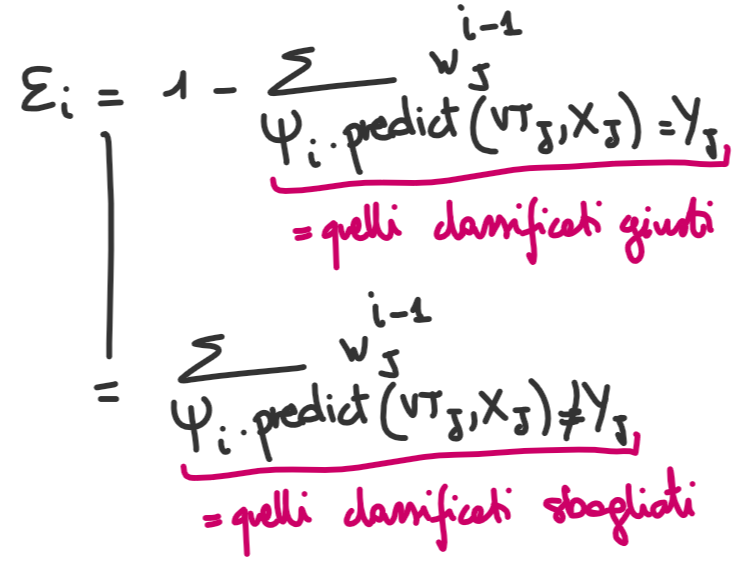 εᵢ = 1 - Σ wⱼ^{i-1}
ψᵢ.predict(VTⱼ,Xⱼ)=Yⱼ
=quelli classificati giusti
= Σ wⱼ^{i-1}
ψᵢ.predict(VTⱼ,Xⱼ)≠Yⱼ
=quelli classificati sbagliati